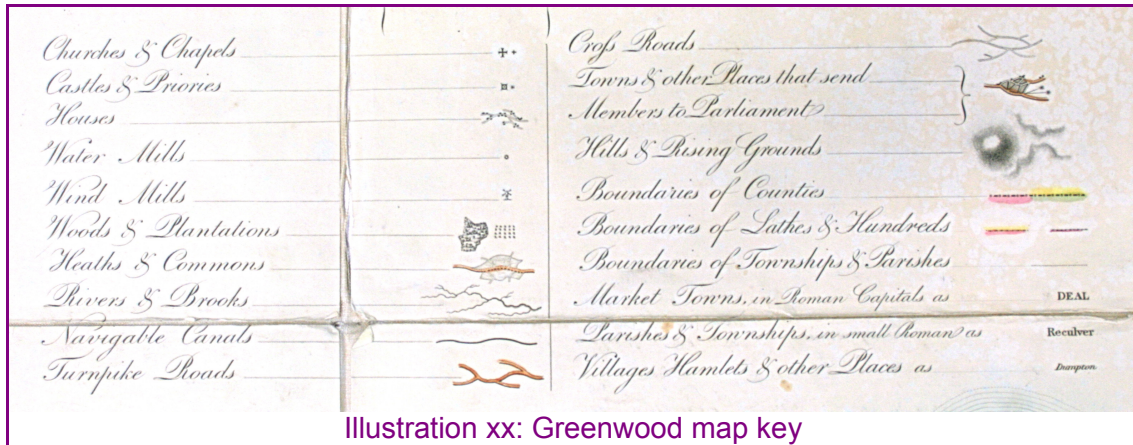 Churches & Chapels
Castles & Priories
Houses
Water Mills
Wind Mills
Woods & Plantations
Heaths & Commons
Rivers & Brooks
Navigable Canals
Turnpike Roads
Croſs Roads
Towns & other Places that send
Members to Parliament
Hills & Rising Grounds
Boundaries of Counties
Boundaries of Lathes & Hundreds
Boundaries of Townships & Parishes
Market Towns, in Roman Capitals as DEAL
Parishes & Townships, in small Roman as Reculver
Villages Hamlets & other Places as Dumpton
Illustration xx: Greenwood map key